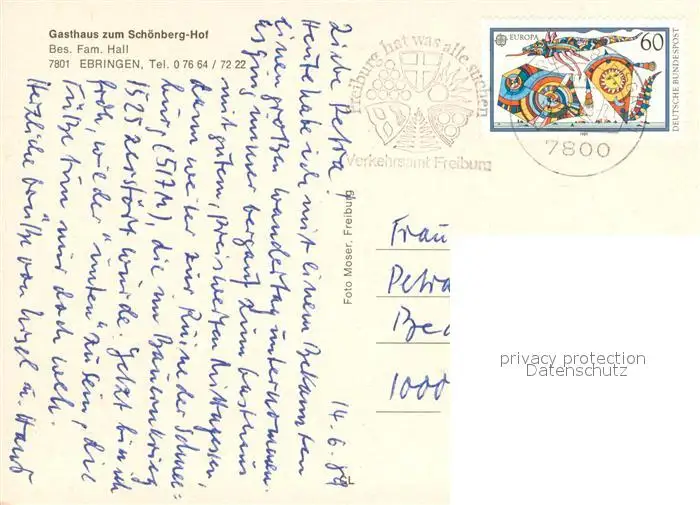 Gasthaus zum Schönberg-Hof
Bes. Fam. Hall
7801 EBRINGEN, Tel. 0 76 64 / 72 22
14.6.89
Liebe Petra!
Heute habe ich mit einem Bekannten
einen großen Wandertag unternommen.
Es ging immer bergauf zum Gasthaus
mit gutem, preiswerten Mittagessen,
dann weiter zur Ruine der Schnee=
burg (517m), die im Bauernkrieg
1525 zerstört wurde. Jetzt bin ich
froh, wieder "unten" zu sein, die
Füße tun mir doch weh.
Herzliche Grüße von
Foto Moser, Freiburg
Freiburg hat was alle suchen
Verkehrsamt Freiburg
EUROPA
60
DEUTSCHE BUNDESPOST
1989
7800
Frau
Petra
1000
privacy protection
Datenschutz